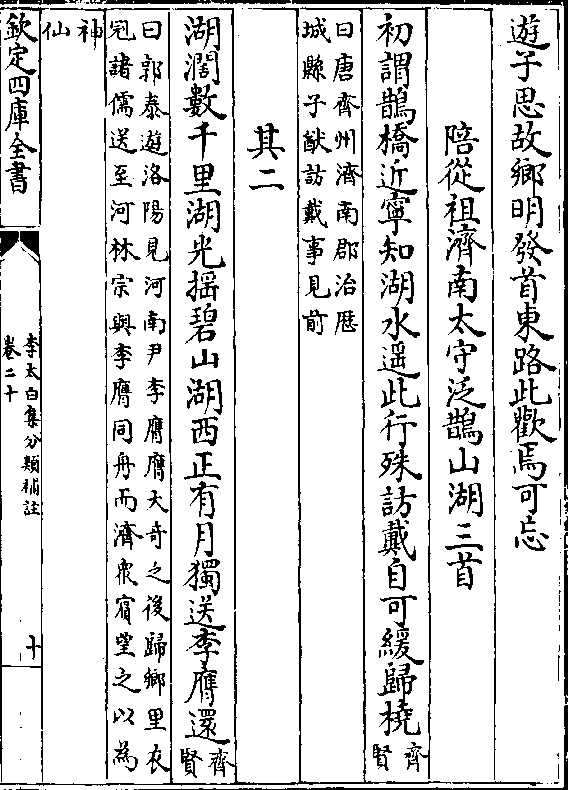 遊子思故鄉明發首東路此歡焉可忘
陪從祖濟南太守泛鵲山湖三首
初謂鵲橋近寧知湖水遥此行殊訪戴自可緩歸橈齊賢
曰唐齊州濟南郡治歴
城縣子猷訪戴事見前
其二
湖濶數千里湖光揺碧山湖西正有月獨送李膺還齊賢
曰郭泰遊洛陽見河南尹李膺膺大奇之後歸鄉里衣
冠諸儒送至河林宗與李膺同舟而濟衆賔望之以為
神
仙
欽定四庫全書
李太白集分類補註
卷二十
十